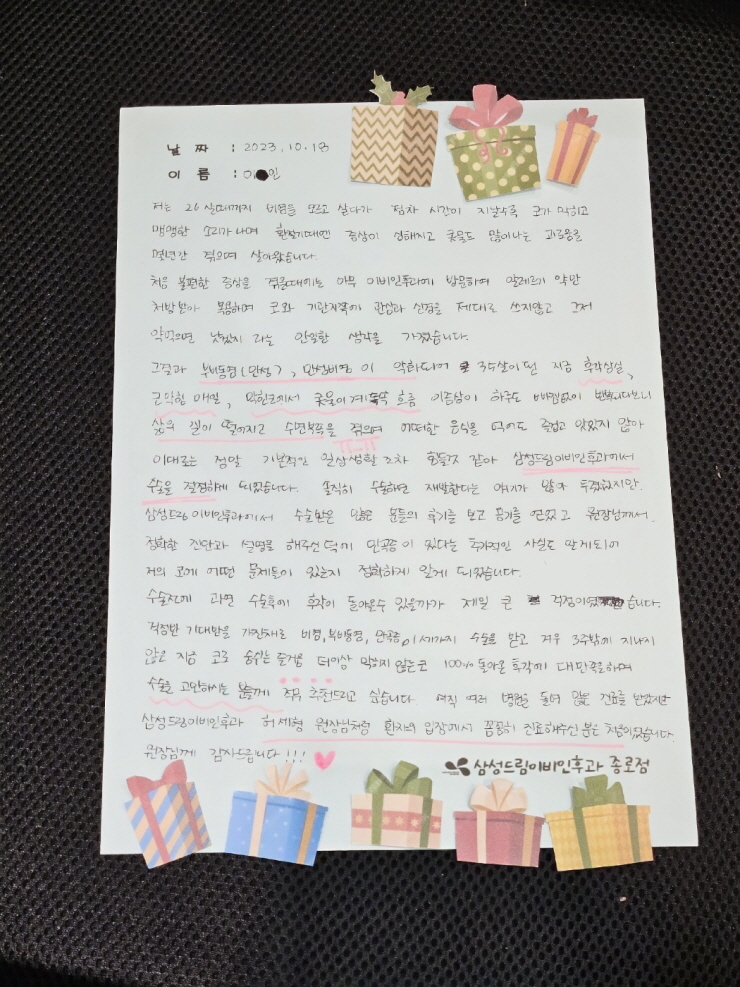 날 짜 : 2023.10.18
이 름 : 이 인
저는 26살때까지 비염을 모르고 살다가 점차 시간이 지날수록 코가 막히고
맹맹한 소리가나며 환절기때면 증상이 심해지고 콧물도 많이나는 괴로움을
몇년간 겪으며 살아왔습니다.
처음 불편한 증상을 겪을때에는 아무 이비인후과에 방문하여 알레르기 약만
처방받아 복용하며 코와 기관지쪽에 관심과 신경을 제대로 쓰지않고 그저
약먹으면 낫겠지 라는 안일한 생각을 가졌습니다.
그결과 부비동염(만성), 만성비염 이 악화되어 30살이 된 지금 후각상실,
코막힘 매일, 막힌코에서 콧물이 계속 흐름 이증상이 하루도 빠짐없이 반복되다보니
삶의 질이 떨어지고 수면부족을 겪으며 어떠한 음식을 먹어도 즐겁고 맛있지 않아
ㅠㅠ..ㅠ
이대로는 정말 기본적인 일상생활 조차 힘들것 같아 삼성드림이비인후과에서
수술을 결정하게 되었습니다. 솔직히 수술하면 재발한다는 얘기가 많아 두려웠지만,
삼성드림이비인후과에서 수술받은 많은 분들의 후기를 보고 용기를 얻었고 원장님께서
정확한 진단과 설명을 해주신 덕에 만곡증이 있다는 추가적인 사실도 알게되어
저의 코에 어떤 문제들이 있는지 정확하게 알게 되었습니다.
수술전에 과연 수술후에 후각이 돌아올수 있을까가 제일 큰 걱정이었습니다.
걱정반 기대반을 가진채로 비염, 부비동염, 만곡증 이 세가지 수술을 받고 겨우 3주밖에 지나지
않은 지금 코로 숨쉬는 즐거움 더이상 막히지 않는코 100% 돌아온 후각에 대만족하며
수술을 고민하시는 분들께 적극 추천드리고 싶습니다. 여직 여러 병원을 돌며 많은 진료를 받았지만
삼성드림이비인후과 허세형 원장님처럼 환자의 입장에서 꼼꼼히 진료해주신 분은 처음이었습니다.
원장님께 감사드립니다!!!
삼성드림이비인후과 종로점